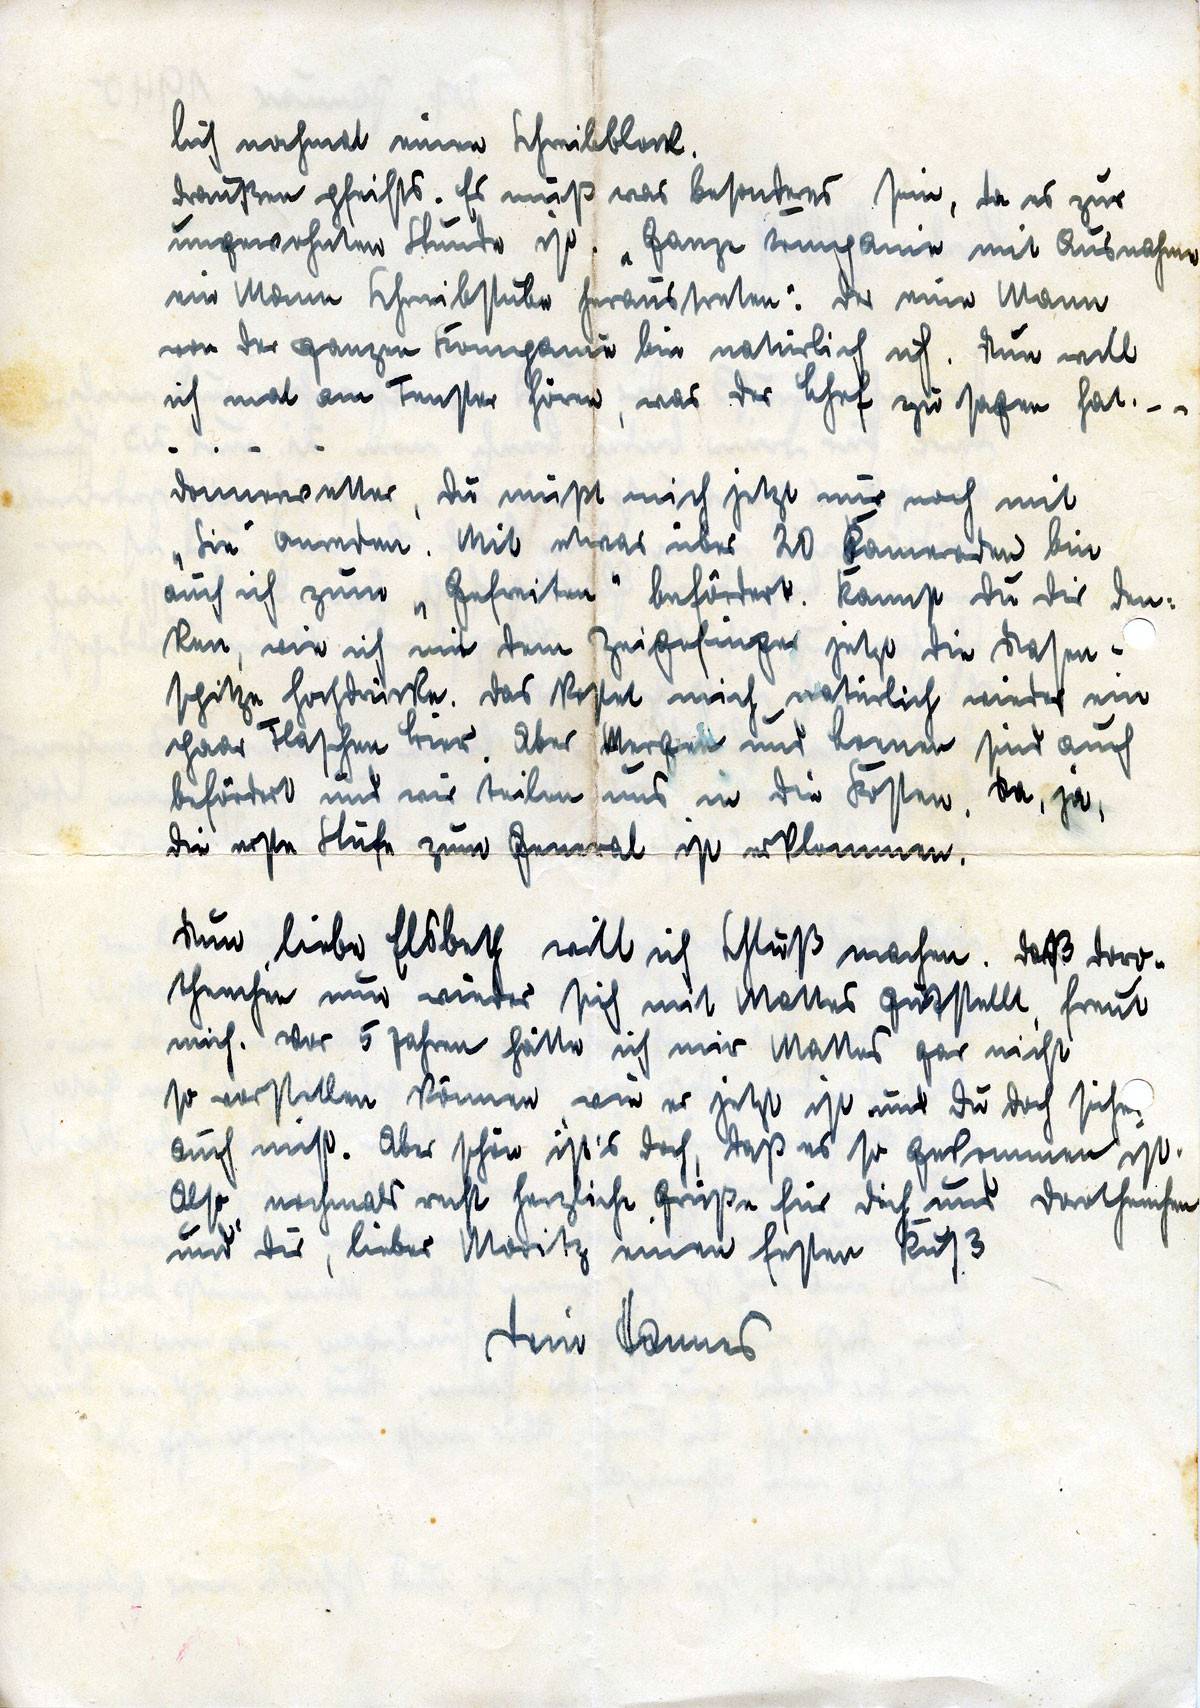 lich nochmal einen Schreibblock.
Draußen pfeifts. Es muß was besonderes sein, da es zur
ungewohnten Stunde ist. „Ganze Kompanie mit Ausnahme
ein Mann Schreibstube heraustreten". Der eine Mann
von der ganzen Kompanie bin natürlich ich. Nun will
ich mal am Fenster hören, was der Chef zu sagen hat. - -
- . - -
Donnerwetter, Du mußt mich jetzt nur noch mit
„Sie" anreden. Mit etwas über 20 Kameraden bin
auch ich zum „Gefreiten" befördert. Kannst Du Dir den-
ken, wie ich mit dem Zeigefinger jetzt die Nasen-
spitze hochdrücke. Das kostet mich natürlich wieder ein
paar Flaschen Bier. Aber und sind auch
befördert und wir teilen uns in die Kosten. Na, ja,
die erste Stufe zum General ist erklommen.
Nun, liebe Elsbeth will ich Schluß machen. Daß Doro-
theechen nun wieder sich mit Mattes gutstellt, freut
mich. Vor 5 Jahren hätte ich mir Mattes gar nicht
so vorstellen können, wie er jetzt ist und Du doch sicher
auch nicht. Aber schön ist's doch, daß es so gekommen ist.
Also, nochmals recht herzliche Grüße für Dich und Dorotheechen
und Dir, lieber Moritz einen festen Kuß
Dein Hannes